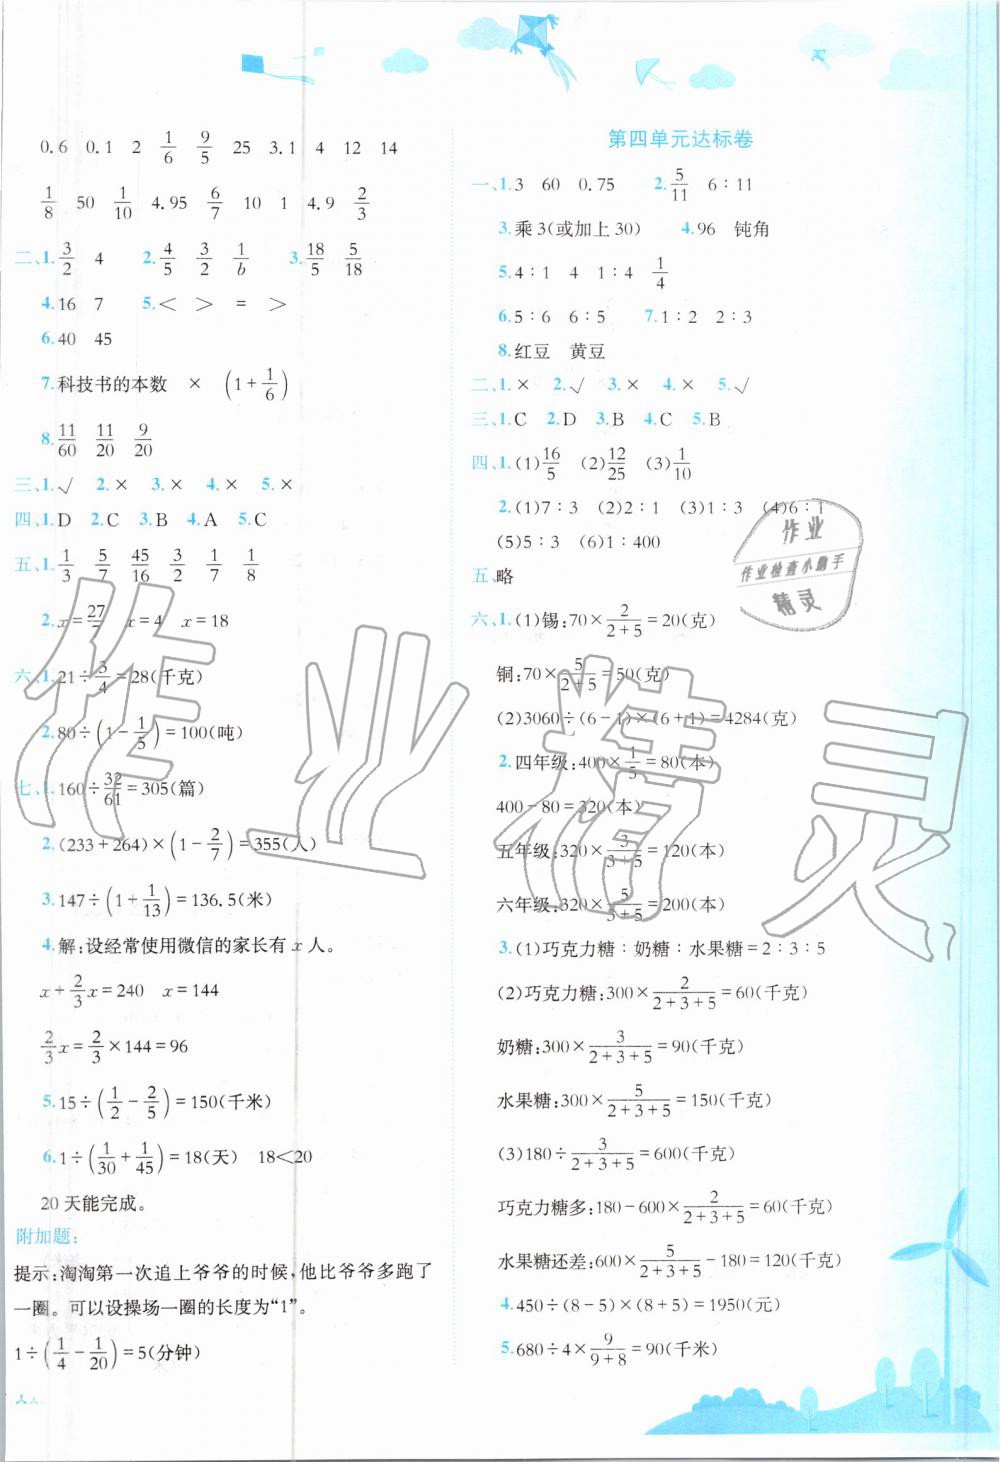 0.6 0.1 2 1/6 9/5 25 3.1 4 12 14
1/8 50 1/10 4.95 6/7 10 1 4.9 2/3
二、1. 3/2 4 2. 4/5 3/2 1/b 3. 18/5 5/18
4. 16 7 5. < > = >
6. 40 45
7. 科技书的本数 × (1+1/6)
8. 11/60 11/20 9/20
三、1. √ 2. × 3. × 4. × 5. ×
四、1. D 2. C 3. B 4. A 5. C
五、1. 1/3 5/7 45/16 3/2 1/7 1/8
2. x=27/ x=4 x=18
六、1. 21÷3/4=28(千克)
2. 80÷(1-1/5)=100(吨)
七、1. 160÷32/61=305(篇)
2. (233+264)×(1-2/7)=355(人)
3. 147÷(1+1/13)=136.5(米)
4. 解:设经常使用微信的家长有 x 人。
x+2/3x=240 x=144
2/3x=2/3×144=96
5. 15÷(1/2-2/5)=150(千米)
6. 1÷(1/30+1/45)=18(天) 18<20
20 天能完成。
附加题:
提示:淘淘第一次追上爷爷的时候,他比爷爷多跑了
一圈。可以设操场一圈的长度为“1”。
1÷(1/4-1/20)=5(分钟)
第四单元达标卷
一、1. 3 60 0.75 2. 5/11 6∶11
3. 乘 3(或加上 30) 4. 96 钝角
5. 4∶1 4 1∶4 1/4
6. 5∶6 6∶5 7. 1∶2 2∶3
8. 红豆 黄豆
二、1. × 2. √ 3. × 4. × 5. √
三、1. C 2. D 3. B 4. C 5. B
四、1. (1)16/5 (2)12/25 (3)1/10
2. (1)7∶3 (2)2∶1 (3)1∶1 (4)6∶1
(5)5∶3 (6)1∶400
五、略
六、1. (1)锡:70×2/(2+5)=20(克)
铜:70×5/(2+5)=50(克)
(2)3060÷(6-1)×(6+1)=4284(克)
2. 四年级:400×1/5=80(本)
400-80=320(本)
五年级:320×3/(3+5)=120(本)
六年级:320×5/(3+5)=200(本)
3. (1)巧克力糖∶奶糖∶水果糖=2∶3∶5
(2)巧克力糖:300×2/(2+3+5)=60(千克)
奶糖:300×3/(2+3+5)=90(千克)
水果糖:300×5/(2+3+5)=150(千克)
(3)180÷3/(2+3+5)=600(千克)
巧克力糖多:180-600×2/(2+3+5)=60(千克)
水果糖还差:600×5/(2+3+5)-180=120(千克)
4. 450÷(8-5)×(8+5)=1950(元)
5. 680÷4×9/(9+8)=90(千米)
作业
作业检查小助手
精灵
作业精灵